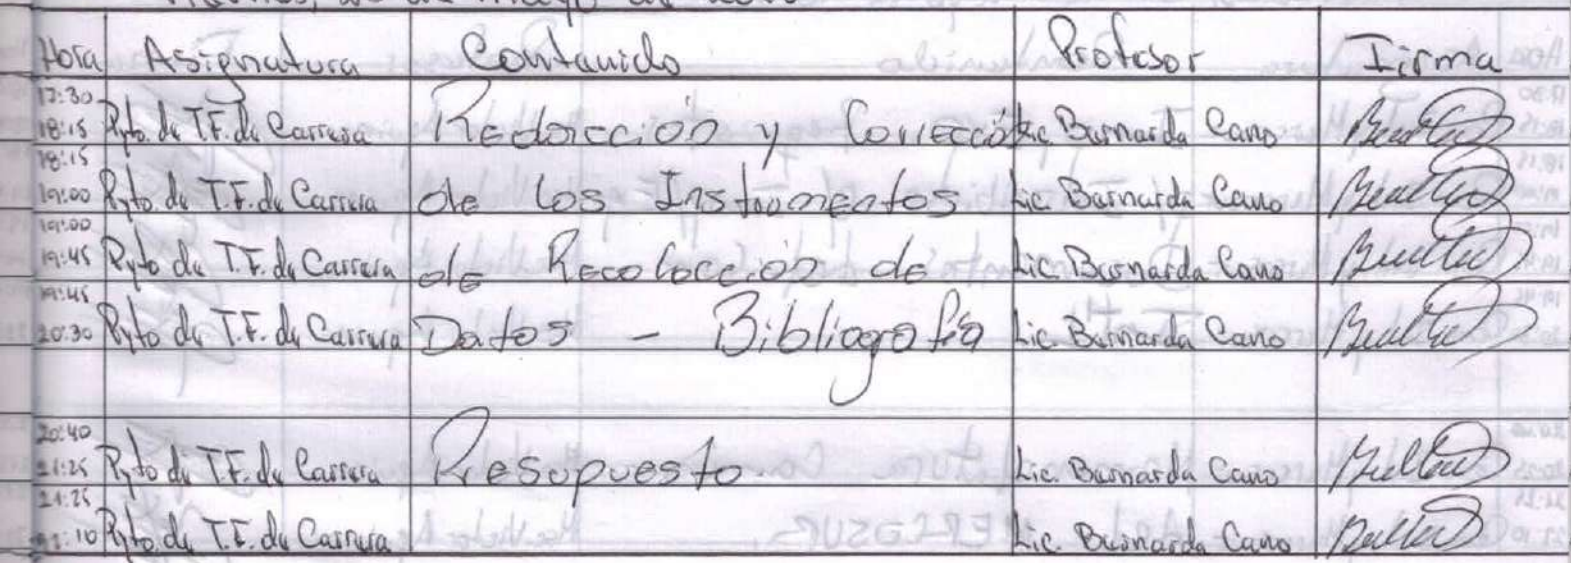 Viernes, de Mayo de
Hora Asignatura Contenido Profesor Firma
17:30 18:15 Pyto. de T.F. de Carrera Redacción y Corrección Lic. Bernarda Cano
18:15 19:00 Pyto. de T.F. de Carrera de los Instrumentos Lic. Bernarda Cano
19:00 19:45 Pyto de T.F. de Carrera de Recolección de Lic. Bernarda Cano
19:45 20:30 Pyto de T.F. de Carrera Datos - Bibliografía Lic. Bernarda Cano
20:40 21:25 Pyto de T.F. de Carrera Presupuesto. Lic. Bernarda Cano
21:25 22:10 Pyto. de T.F. de Carrera Lic. Bernarda Cano